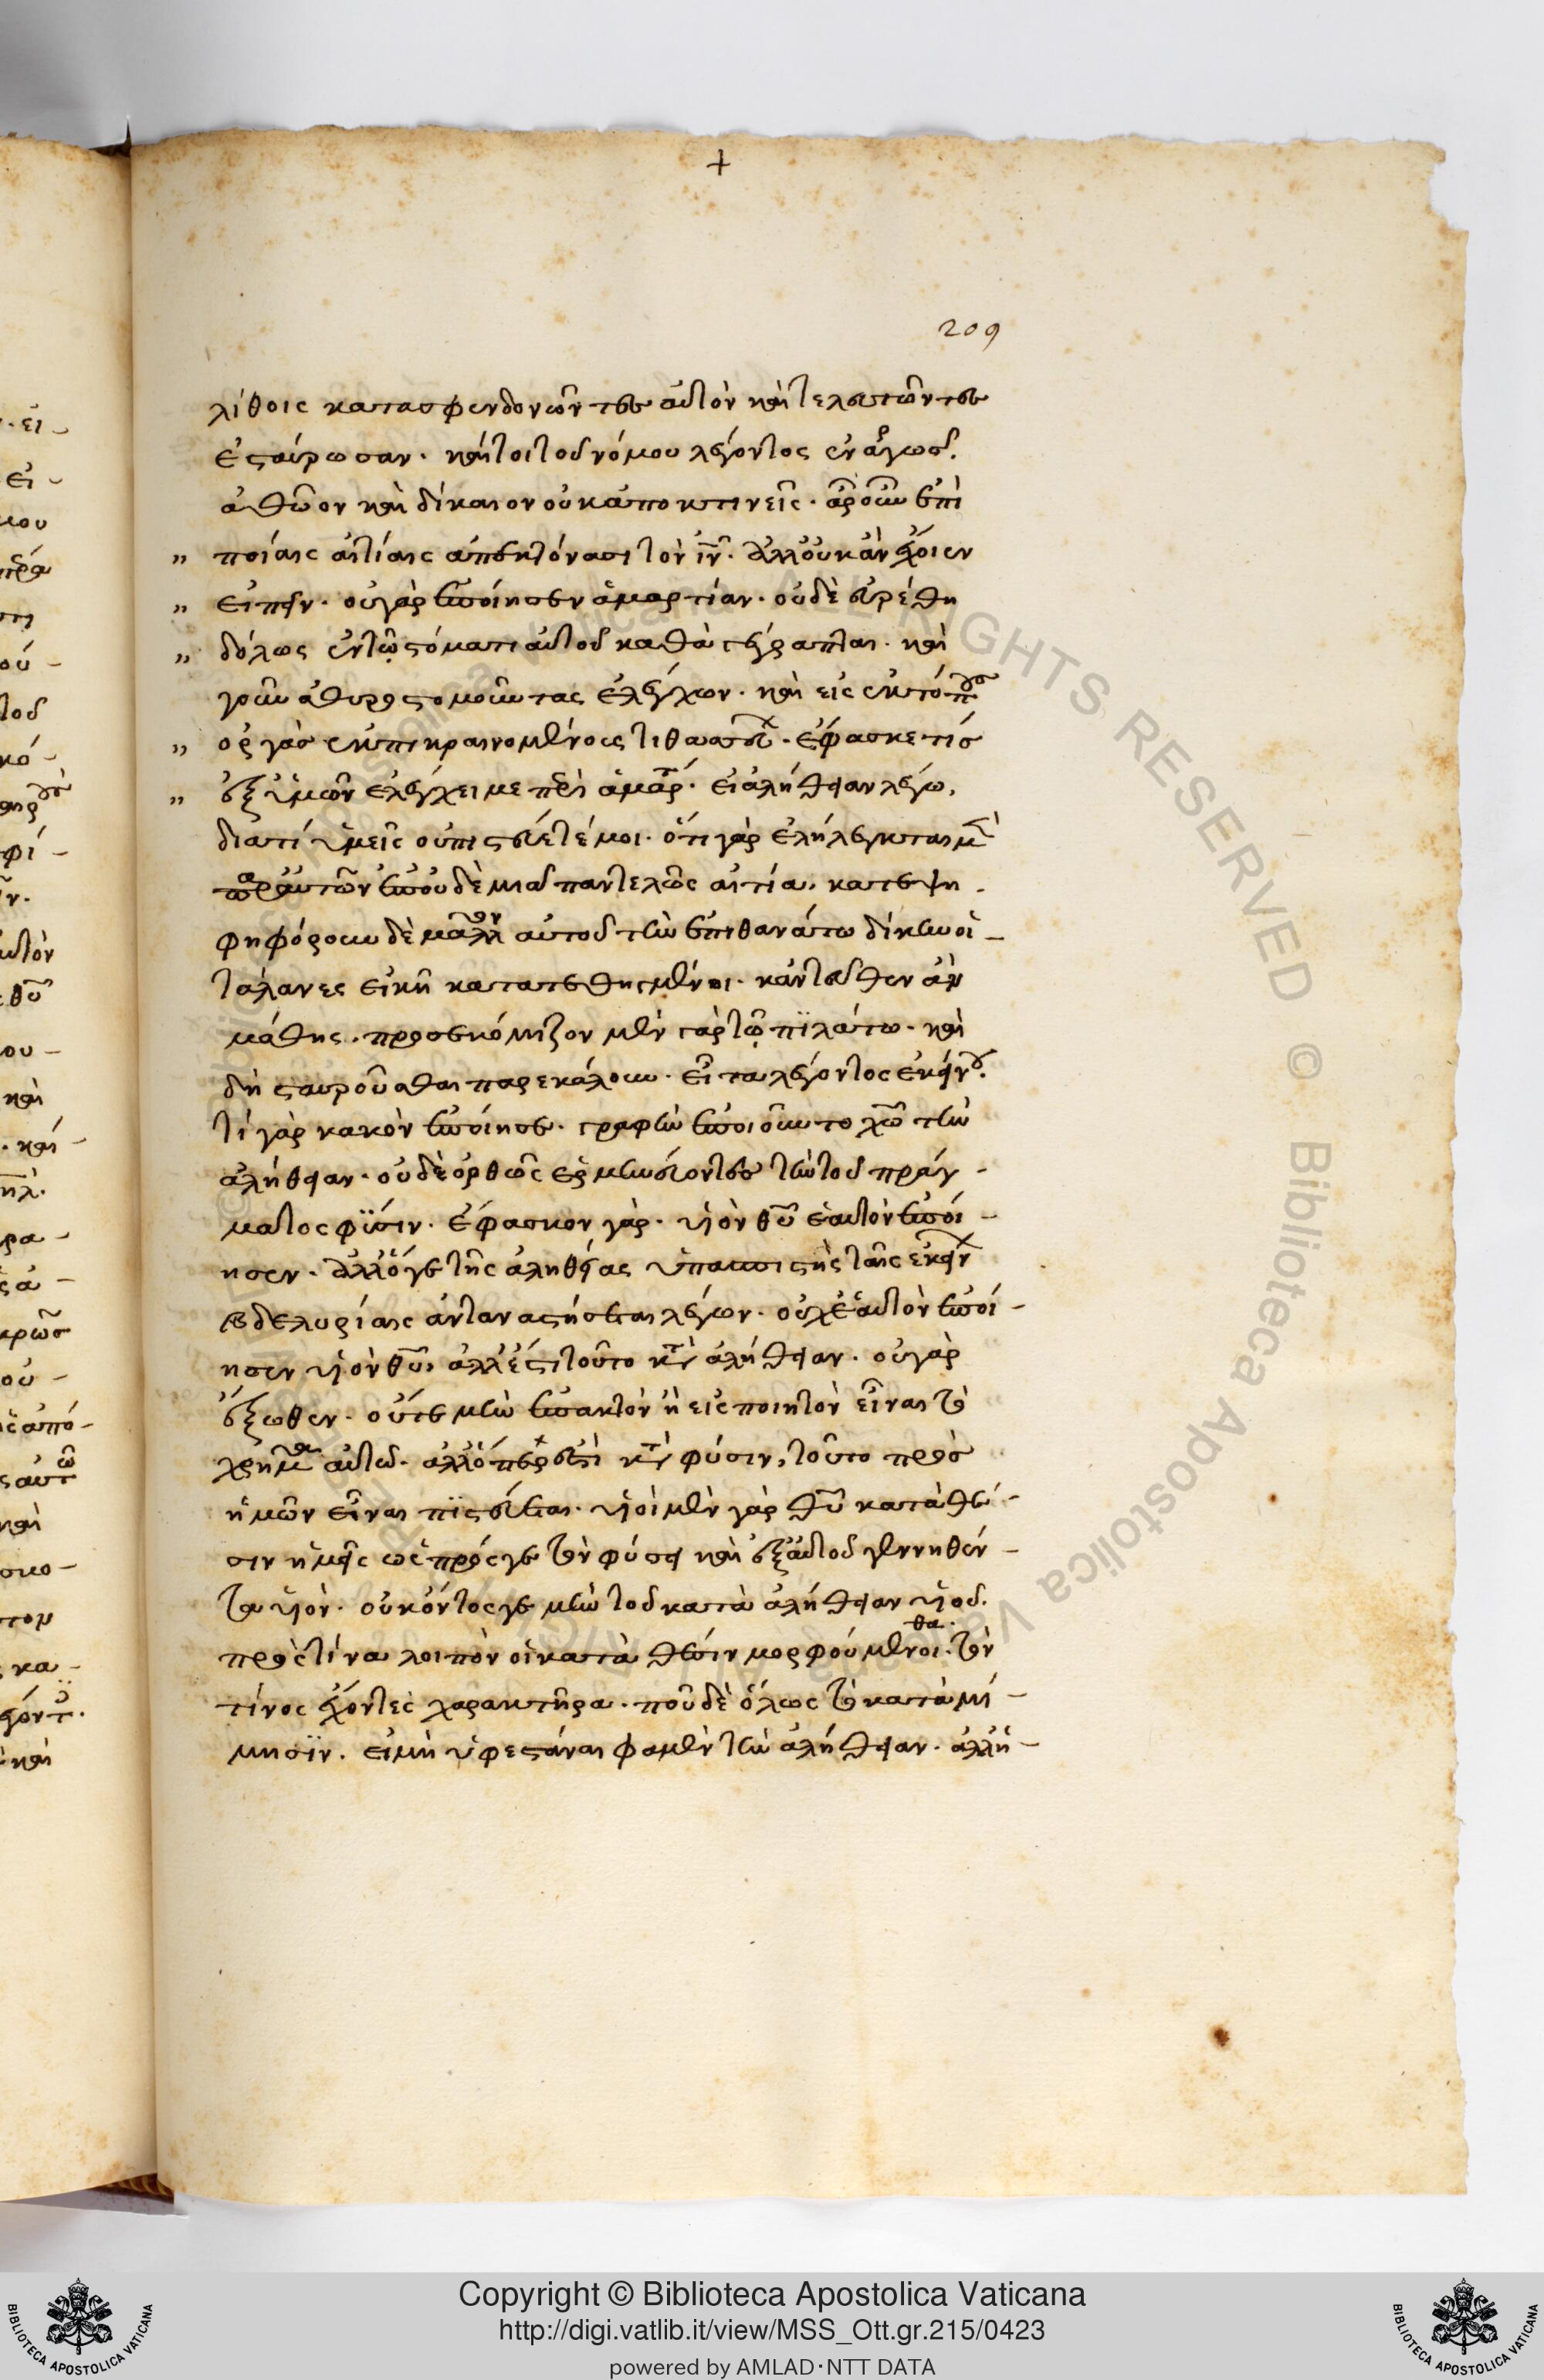 +
209
λίθοις κατασφενδονῶντες αὐτὸν καὶ τελευτῶντες
ἐσταύρωσαν. καίτοι τοῦ νόμου λέγοντος ἐναργῶς.
ἀθῶον καὶ δίκαιον οὐκ ἀποκτενεῖς. ἆρ οὖν ἐπὶ
ποίαις αἰτίαις ἀπεκτόνασι τὸν ἰν. ἀλλ οὐκ ἂν ἔχοιεν
εἰπεῖν. οὐ γὰρ ἐποίησεν ἁμαρτίαν. οὐδὲ εὑρέθη
δόλος ἐν τῷ στόματι αὐτοῦ καθὰ γέγραπται. καὶ
γοῦν ἀθυροστομοῦντας ἐλέγχων. καὶ εἰς ἐκτόπους
ὀργὰς ἐκπικραινομένοις τιθασεύων. ἔφασκε τίς
ἐξ ὑμῶν ἐλέγχει με περὶ ἁμαρτ. εἰ ἀλήθειαν λέγω,
διατί ὑμεῖς οὐ πιστεύετέ μοι. ὅτι γὰρ ἐλήλεγκται μὲν
παρ αὐτῶν ἐπ οὐδὲ μιᾷ παντελῶς αἰτία, κατεψη
φηφόρουν δὲ μᾶλλον αὐτοῦ τὴν ἐπὶ θανάτω δίκην οἱ
τάλανες εἰκῆ κατατεθημένοι. κἀντεῦθεν ἂν
μάθης. προσεκόμιζον μὲν γὰρ τῷ πϊλάτω. καὶ
δὴ σταυροῦσθαι παρεκάλουν. εἶτα λέγοντος ἐκείνου.
τί γὰρ κακὸν ἐποίησε. γραφὴν ἐποιοῦντο χῶ τὴν
ἀλήθειαν. οὐδὲ ὀρθῶς ἑρμηνεύοντες τὴν τοῦ πράγ
ματος φΰσιν. ἔφασκον γὰρ. υἱὸν θῦ ἑαυτὸν ἐποί
ησεν. ἀλλ ὅγε τῆς ἀληθείας ὑπασπιστὴς ταῖς ἐκείνων
βδελυρίαις ἀνταναστήσεται λέγων. οὐχ ἑαυτὸν ἐποί
ησεν υἱὸν θῦ, ἀλλ ἔστι τοῦτο κατὰ ἀλήθειαν. οὐ γὰρ
ἔξωθεν. οὔτε μὴν ἐπακτὸν ἢ εἰσποιητὸν εἶναι τὸ
χρῆμα αὐτῶ. ἀλλ ὅπερ ἐστὶ κατὰ φύσιν, τοῦτο πρὸς
ἡμῶν εἶναι πϊστεύεται. υἱοὶ μὲν γὰρ θῦ κατὰ θέ
σιν ἡμεῖς ὡς πρός γε τὸν φύσει καὶ ἐξ αὐτοῦ γεννηθέν
τα υἱόν. οὐκ ὄντος γε μὴν τοῦ κατὰ ἀλήθειαν υἱοῦ.
πρὸς τίνα λοιπὸν οἱ κατὰ θέσιν μορφούμεθα. τὸν
τίνος ἔχοντες χαρακτῆρα. ποῦ δὲ ὅλως τὸ κατὰ μί
μησϊν. εἰ μὴ ὑφεστάναι φαμὲν τὴν ἀλήθειαν. ἀλλ ἡ
ALL RIGHTS RESERVED © Biblioteca Apostolica Vaticana
Copyright © Biblioteca Apostolica Vaticana
http://digi.vatlib.it/view/MSS_Ott.gr.215/0423
powered by AMLAD·NTT DATA
BIBLIOTECA APOSTOLICA VATICANA
BIBLIOTECA APOSTOLICA VATICANA